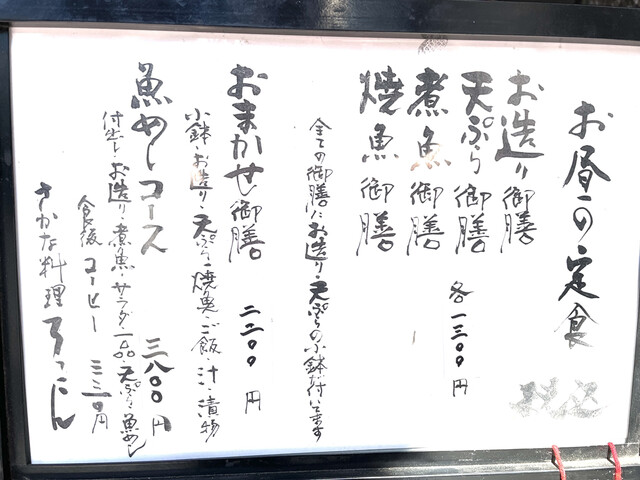 お昼の定食
お造り御膳
天ぷら御膳
煮魚御膳
焼魚御膳
各一三〇〇円
全ての御膳にお造り・天ぷらの小鉢が付いてます
おまかせ御膳 二二〇〇円
小鉢・お造り・天ぷら・焼魚・ご飯・汁・漬物
魚めしコース 三八〇〇円
付出し・お造り・煮魚・サラダ・一品・天ぷら・魚めし
食後コーヒー 三三〇円
さかな料理